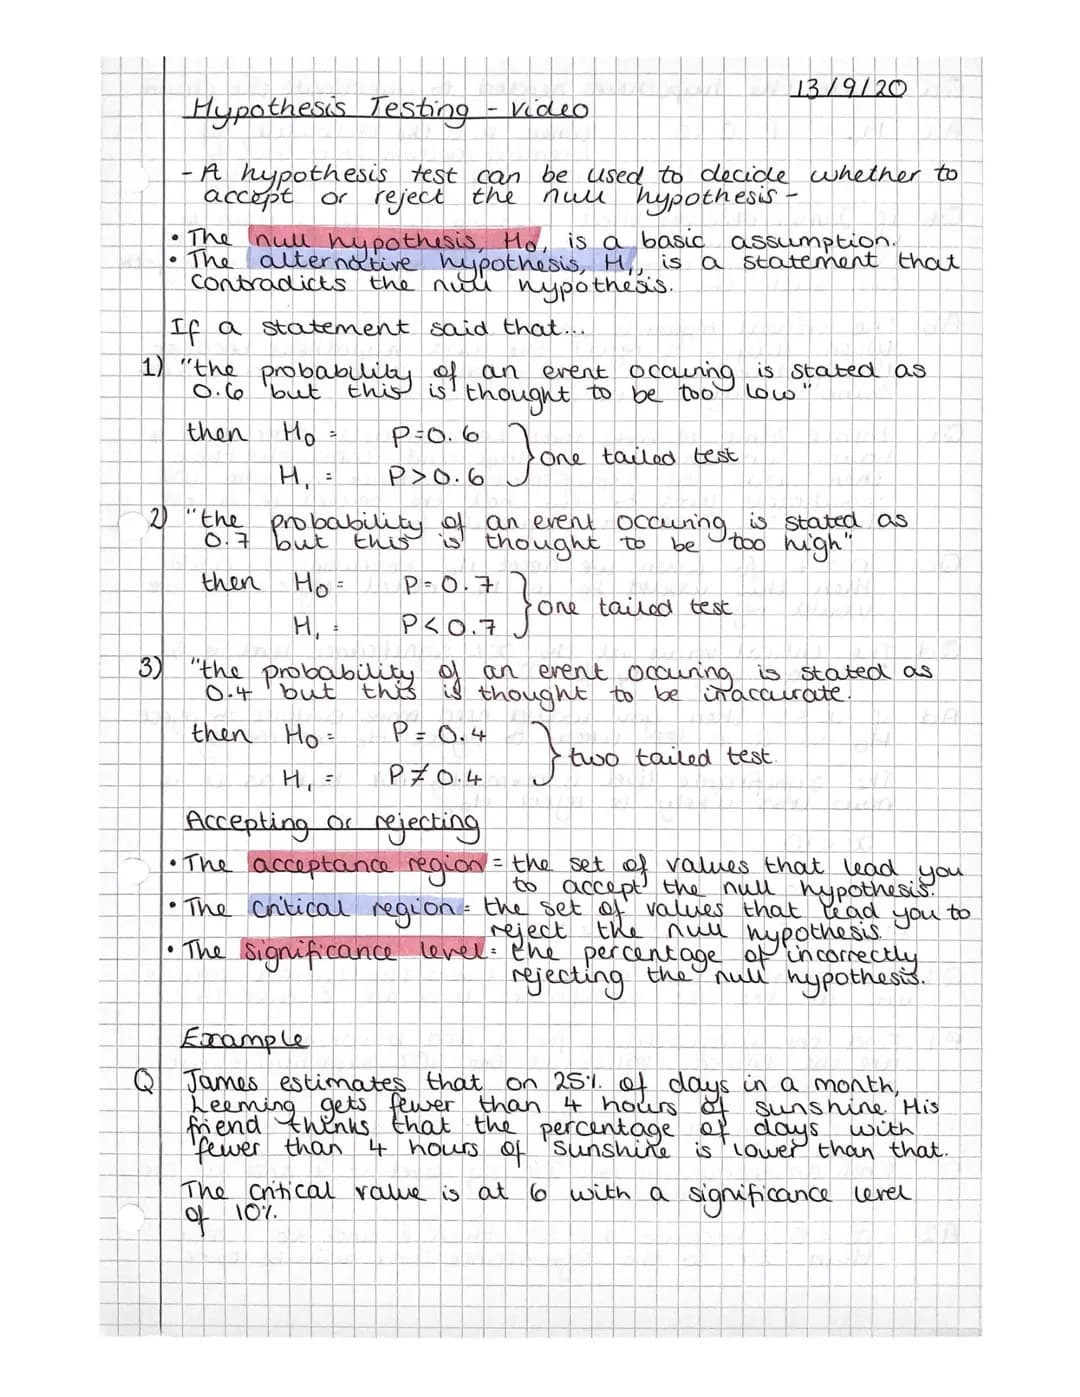 13/9/20
Hypothesis Testing - video
- A hypothesis test can be used to decide whether to
accept or reject the null hypothesis -
• The null hypothesis, H₀, is a basic assumption.
• The alternative hypothesis, H₁, is a statement that
contradicts the null hypothesis.
If a statement said that...
1) "the probability of an event occuring is stated as
0.6 but this is thought to be too low"
then H₀ = P=0.6
} one tailed test
H₁ = P>0.6
2) "the probability of an event occuring is stated as
0.7 but this is thought to be too high"
then H₀ = P=0.7
} one tailed test
H₁ = P<0.7
3) "the probability of an event occuring is stated as
0.4 but this is thought to be inaccurate.
then H₀ = P = 0.4
} two tailed test.
H₁ = P≠0.4
Accepting or rejecting
• The acceptance region = the set of values that lead you
to accept the null hypothesis.
• The critical region = the set of values that lead you to
reject the null hypothesis.
• The significance level = the percentage of incorrectly
rejecting the null hypothesis.
Example
Q James estimates that on 25% of days in a month,
Leeming gets fewer than 4 hours of sunshine. His
friend thinks that the percentage of days with
fewer than 4 hours of sunshine is lower than that.
The critical value is at 6 with a significance level
of 10%.